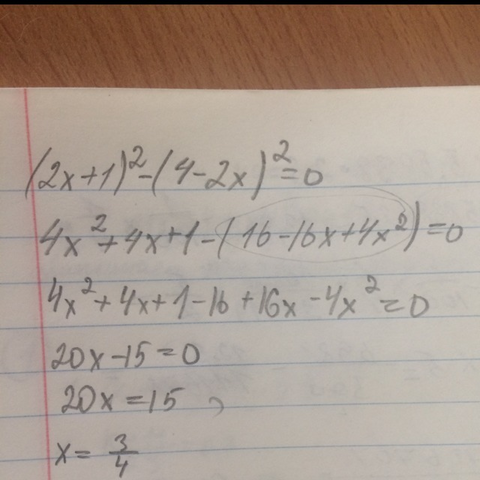 (2x+1)²-(4-2x)²=0
4x²+4x+1-(16-16x+4x²)=0
4x²+4x+1-16+16x-4x²=0
20x-15=0
20x=15
x=3/4